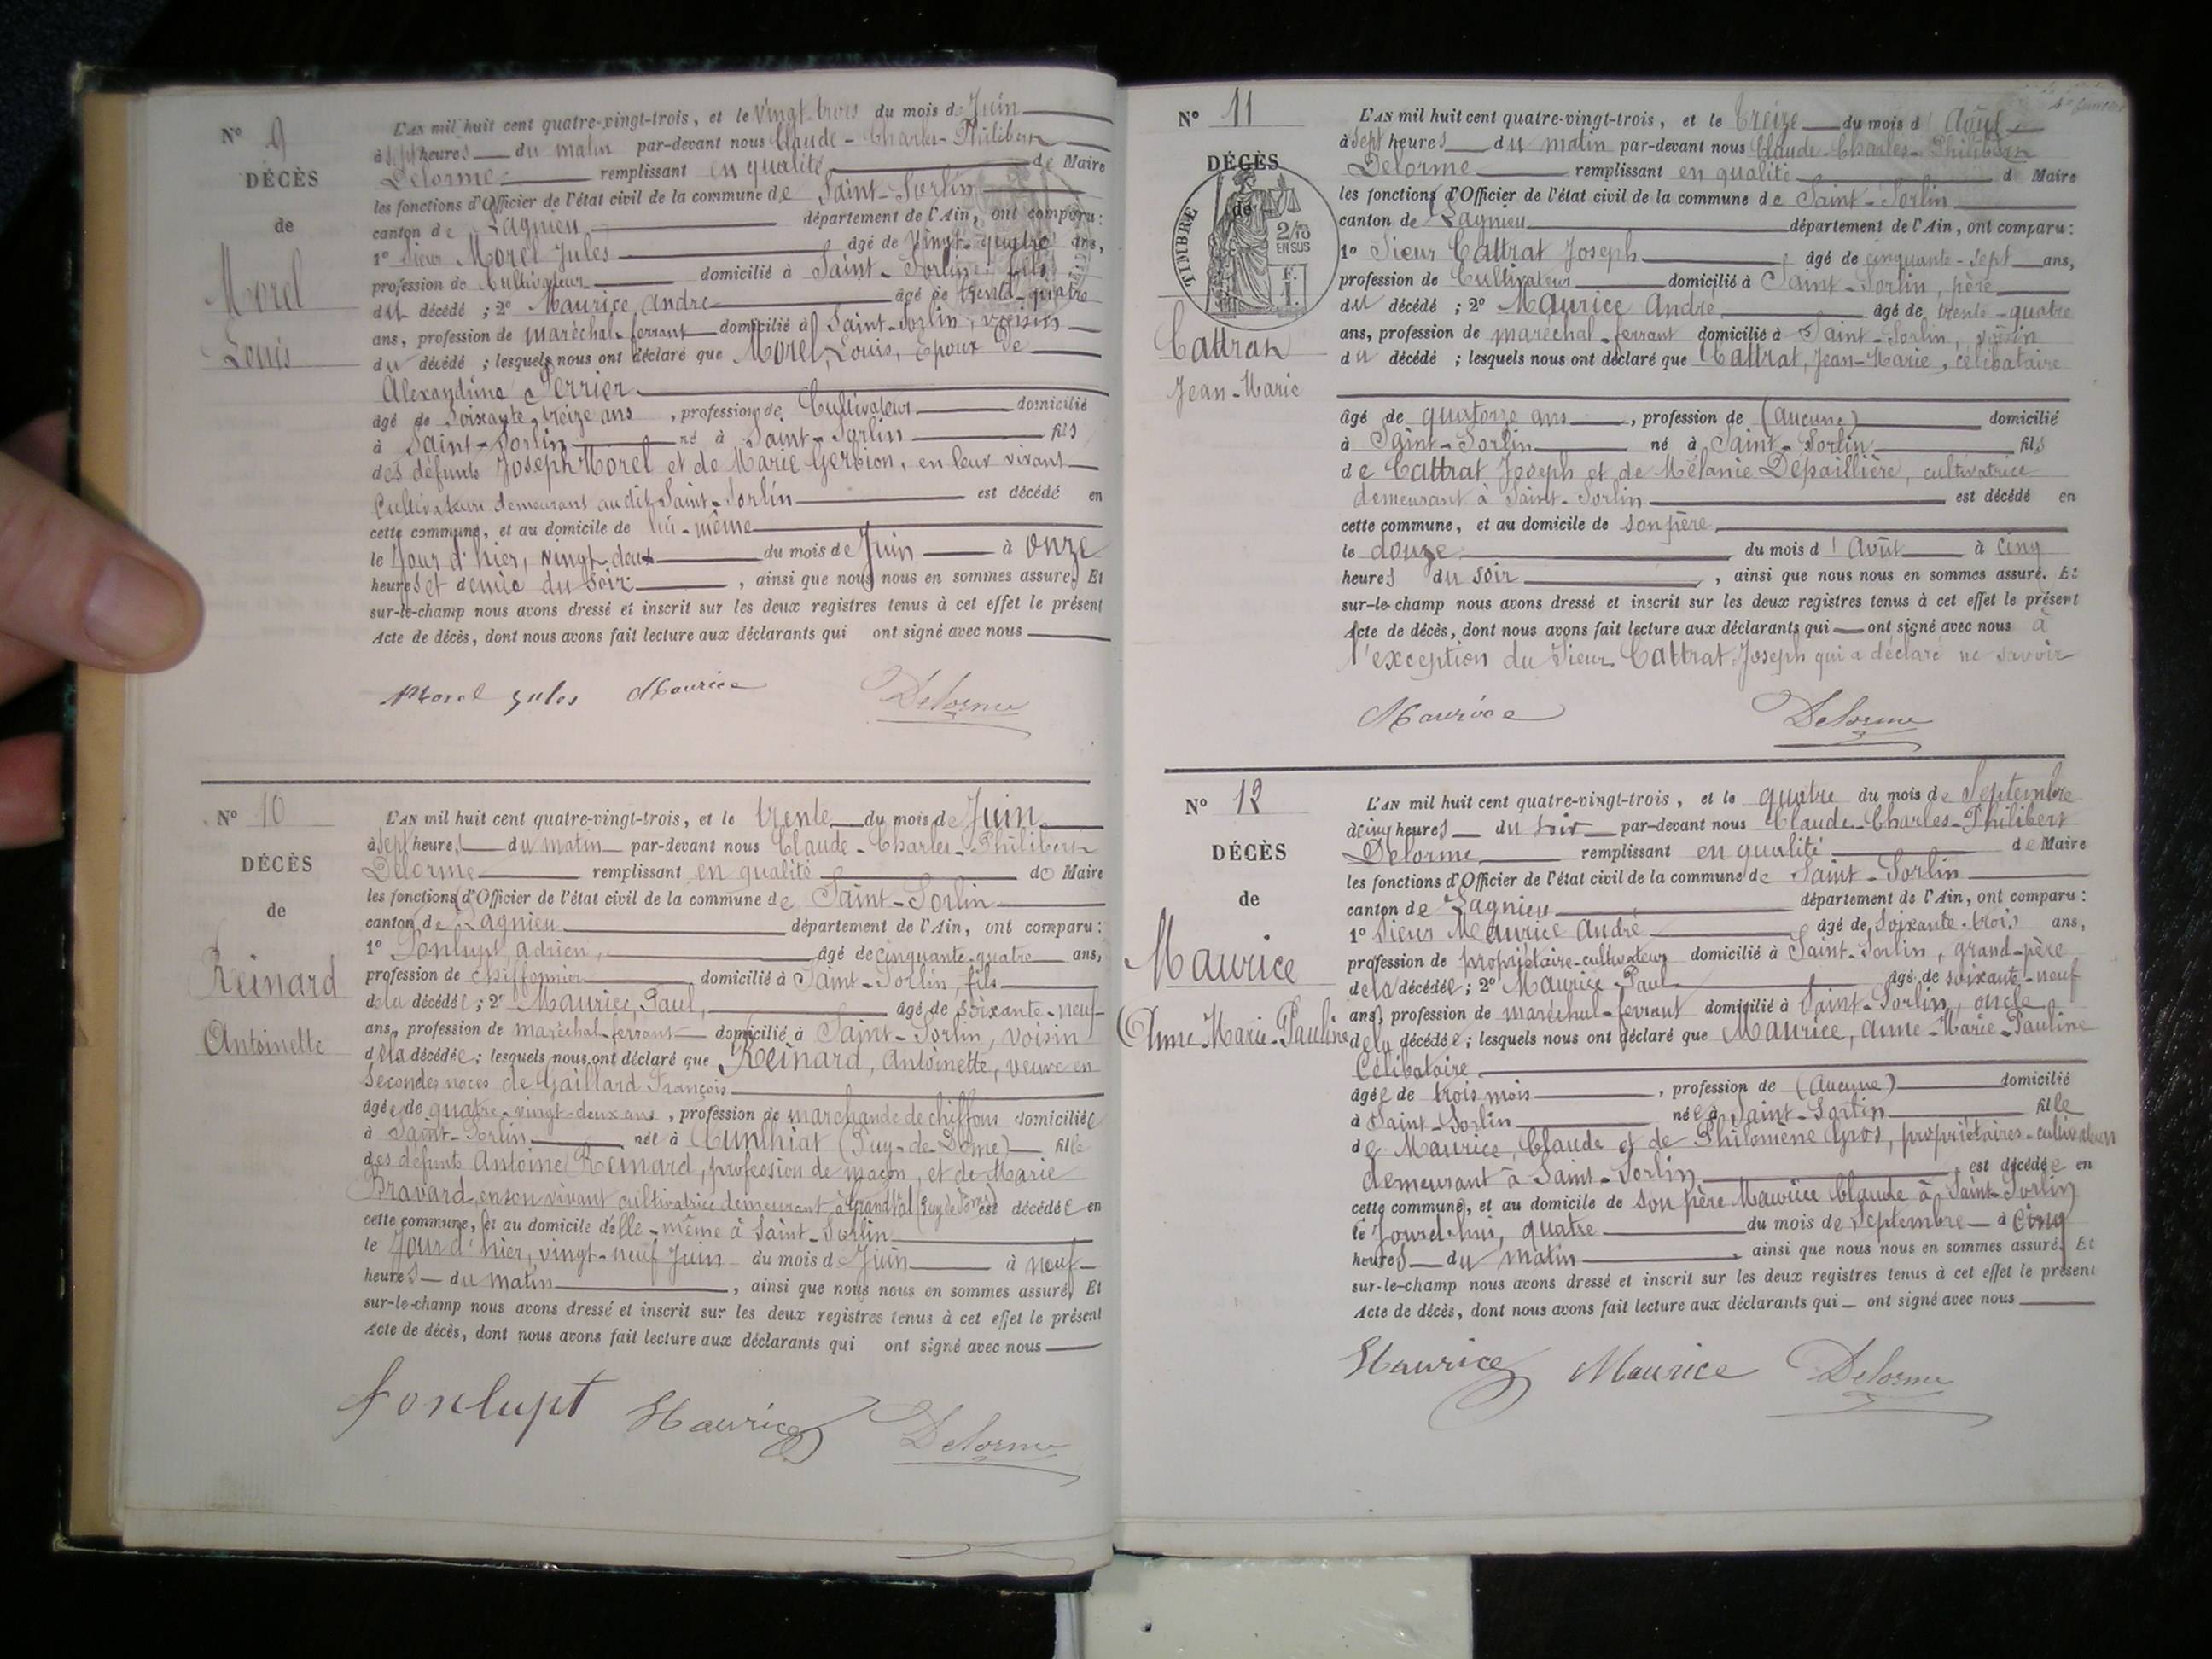 N° 9
DÉCÈS
de
Morel
Louis
L'AN mil huit cent quatre-vingt-trois, et le vingt-trois du mois de Juin
à sept heures du matin par-devant nous Claude-Charles-Philibert
Delorme remplissant en qualité de Maire
les fonctions d'Officier de l'état civil de la commune de Saint-Sorlin
canton de Lagnieu département de l'Ain, ont comparu :
1° Sieur Morel Jules âgé de vingt-quatre ans,
profession de Cultivateur domicilié à Saint-Sorlin, fils
du décédé ; 2° Maurice André âgé de trente-quatre
ans, profession de maréchal-ferrant domicilié à Saint-Sorlin, voisin
du décédé ; lesquels nous ont déclaré que Morel, Louis, Epoux de
Alexandrine Perrier
âgé de soixante-treize ans, profession de Cultivateur domicilié
à Saint-Sorlin né à Saint-Sorlin fils
des défunts Joseph Morel et de Marie Gerbion, en leur vivant
Cultivateurs demeurant audit Saint-Sorlin est décédé en
cette commune, et au domicile de lui-même
le Jour d'hier, vingt-deux du mois de Juin à onze
heures et demie du soir , ainsi que nous nous en sommes assuré. Et
sur-le-champ nous avons dressé et inscrit sur les deux registres tenus à cet effet le présent
Acte de décès, dont nous avons fait lecture aux déclarants qui ont signé avec nous
Morel Jules Maurice Delorme
N° 10
DÉCÈS
de
Reinard
Antoinette
L'AN mil huit cent quatre-vingt-trois, et le trente du mois de Juin
à sept heures du matin par-devant nous Claude-Charles-Philibert
Delorme remplissant en qualité de Maire
les fonctions d'Officier de l'état civil de la commune de Saint-Sorlin
canton de Lagnieu département de l'Ain, ont comparu :
1° Fonlupt, adrien, âgé de cinquante-quatre ans,
profession de chiffonnier domicilié à Saint-Sorlin, fils
de la décédée ; 2° Maurice, Paul, âgé de soixante-neuf
ans, profession de maréchal-ferrant domicilié à Saint-Sorlin, voisin
de la décédée ; lesquels nous ont déclaré que Reinard, Antoinette, veuve en
secondes noces de Gaillard François
âgée de quatre-vingt-deux ans, profession de marchande de chiffons domiciliée
à Saint-Sorlin née à Cunlhiat (Puy-de-Dôme) fille
des défunts Antoine Reinard, profession de maçon, et de Marie
Bravard, en son vivant cultivatrice demeurant à Grandval (Puy de Dôme) est décédée en
cette commune, et au domicile d'elle-même à Saint-Sorlin
le Jour d'hier, vingt-neuf Juin du mois de Juin à neuf
heures du matin , ainsi que nous nous en sommes assuré. Et
sur-le-champ nous avons dressé et inscrit sur les deux registres tenus à cet effet le présent
Acte de décès, dont nous avons fait lecture aux déclarants qui ont signé avec nous
fonlupt Maurice Delorme
N° 11
DÉCÈS
de
TIMBRE
2/10
EN SUS
Cattrat
Jean-Marie
L'AN mil huit cent quatre-vingt-trois, et le treize du mois d'Août
à sept heures du matin par-devant nous Claude-Charles-Philibert
Delorme remplissant en qualité d Maire
les fonctions d'Officier de l'état civil de la commune de Saint-Sorlin
canton de Lagnieu département de l'Ain, ont comparu :
1° Sieur Cattrat Joseph âgé de cinquante-sept ans,
profession de Cultivateur domicilié à Saint-Sorlin, père
du décédé ; 2° Maurice André âgé de trente-quatre
ans, profession de maréchal-ferrant domicilié à Saint-Sorlin, voisin
du décédé ; lesquels nous ont déclaré que Cattrat, Jean-Marie, célibataire
âgé de quatorze ans, profession de (aucune) domicilié
à Saint-Sorlin né à Saint-Sorlin fils
de Cattrat Joseph et de Mélanie Depaillière, cultivatrice
demeurant à Saint-Sorlin est décédé en
cette commune, et au domicile de son père
le douze du mois d'Août à cinq
heures du soir , ainsi que nous nous en sommes assuré. Et
sur-le-champ nous avons dressé et inscrit sur les deux registres tenus à cet effet le présent
Acte de décès, dont nous avons fait lecture aux déclarants qui ont signé avec nous à
l'exception du Sieur Cattrat Joseph qui a déclaré ne savoir
Maurice Delorme
N° 12
DÉCÈS
de
Maurice
Anne-Marie-Pauline
L'AN mil huit cent quatre-vingt-trois, et le quatre du mois de Septembre
à cinq heures du soir par-devant nous Claude-Charles-Philibert
Delorme remplissant en qualité de Maire
les fonctions d'Officier de l'état civil de la commune de Saint-Sorlin
canton de Lagnieu département de l'Ain, ont comparu :
1° Sieur Maurice André âgé de soixante-trois ans,
profession de propriétaire-cultivateur domicilié à Saint-Sorlin, grand-père
de la décédée ; 2° Maurice Paul âgé de soixante-neuf
ans, profession de maréchal-ferrant domicilié à Saint-Sorlin, oncle
de la décédée ; lesquels nous ont déclaré que Maurice, Anne-Marie-Pauline
Célibataire
âgée de trois mois , profession de (Aucune) domicilié
à Saint-Sorlin née à Saint-Sorlin fille
de Maurice, Claude et de Philomène Gros, propriétaires-cultivateurs
demeurant à Saint-Sorlin est décédée en
cette commune, et au domicile de son père Maurice Claude à Saint-Sorlin
le Jourd'hui, quatre du mois de Septembre à cinq
heures du matin , ainsi que nous nous en sommes assuré. Et
sur-le-champ nous avons dressé et inscrit sur les deux registres tenus à cet effet le présent
Acte de décès, dont nous avons fait lecture aux déclarants qui ont signé avec nous
Maurice Maurice Delorme